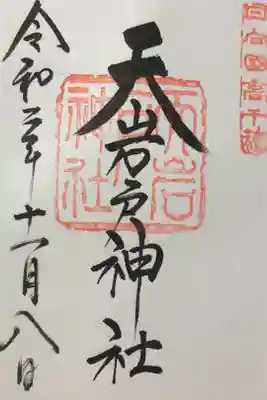 日向國高千穂
天岩戸神社
天岩戸神社
令和二年十一月八日